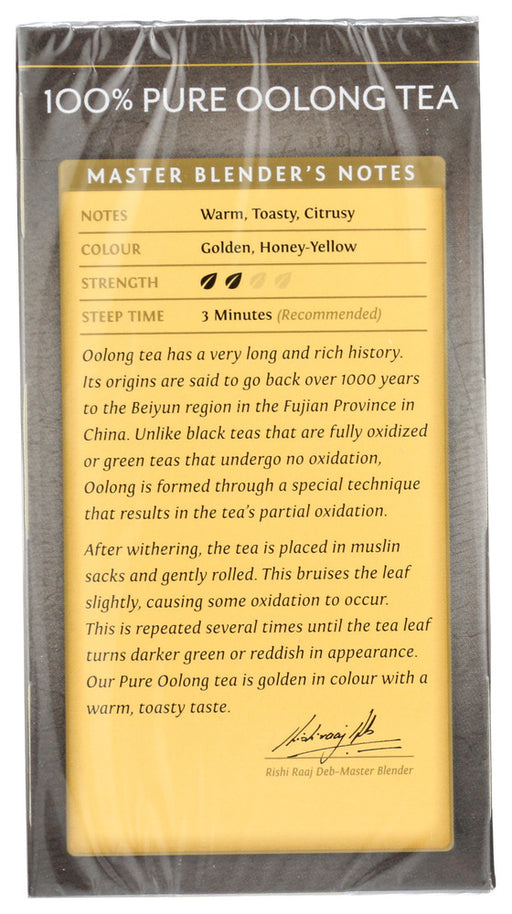 100% PURE OOLONG TEA
MASTER BLENDER'S NOTES
NOTES Warm, Toasty, Citrusy
COLOUR Golden, Honey-Yellow
STRENGTH
STEEP TIME 3 Minutes (Recommended)
Oolong tea has a very long and rich history.
Its origins are said to go back over 1000 years
to the Beiyun region in the Fujian Province in
China. Unlike black teas that are fully oxidized
or green teas that undergo no oxidation,
Oolong is formed through a special technique
that results in the tea's partial oxidation.
After withering, the tea is placed in muslin
sacks and gently rolled. This bruises the leaf
slightly, causing some oxidation to occur.
This is repeated several times until the tea leaf
turns darker green or reddish in appearance.
Our Pure Oolong tea is golden in colour with a
warm, toasty taste.
Rishi Raaj Deb
Rishi Raaj Deb-Master Blender